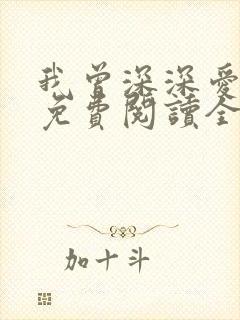 我曾深深爱
免費閱讀全
加十斗